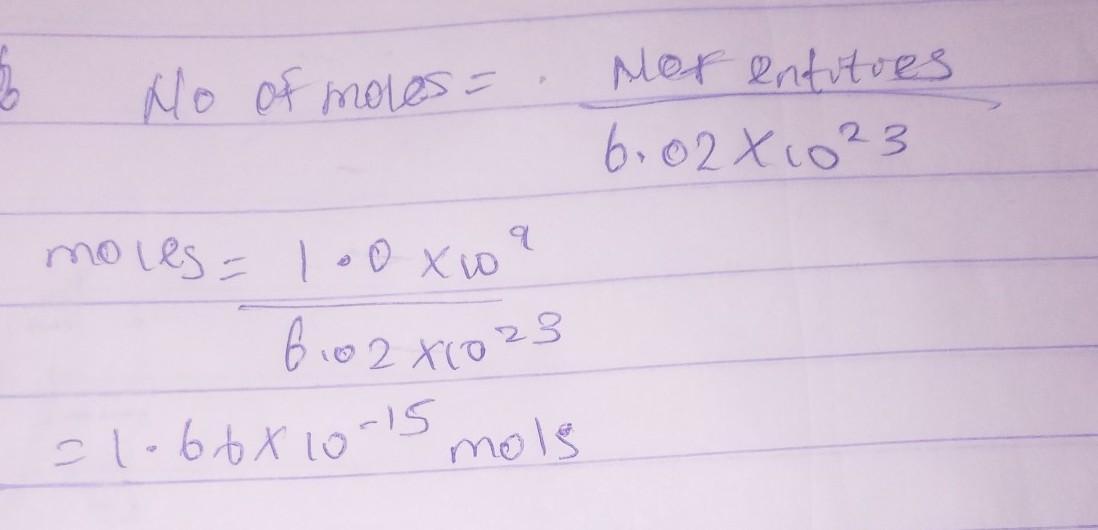 6 No of moles = No of entities
6.02 X 10²³
moles = 1.0 X 10⁹
6.02 X 10²³
= 1.66 X 10⁻¹⁵ mols